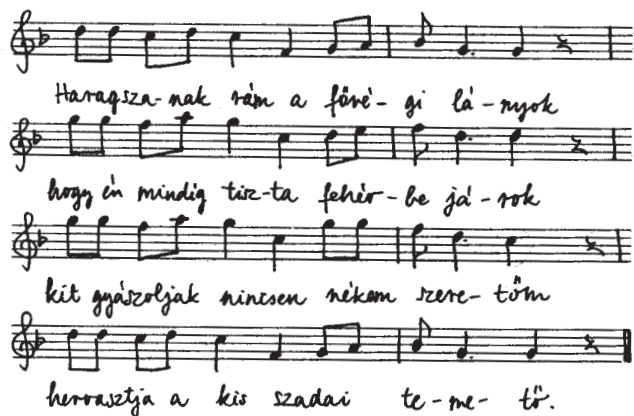 Haragsza-nak rám a főré-gi lá-nyok
hogy én mindig tisz-ta fehér-be já-rok
kit gyászoljak nincsen nékem szere-tőm
hervasztja a kis szadai te-me-tő.